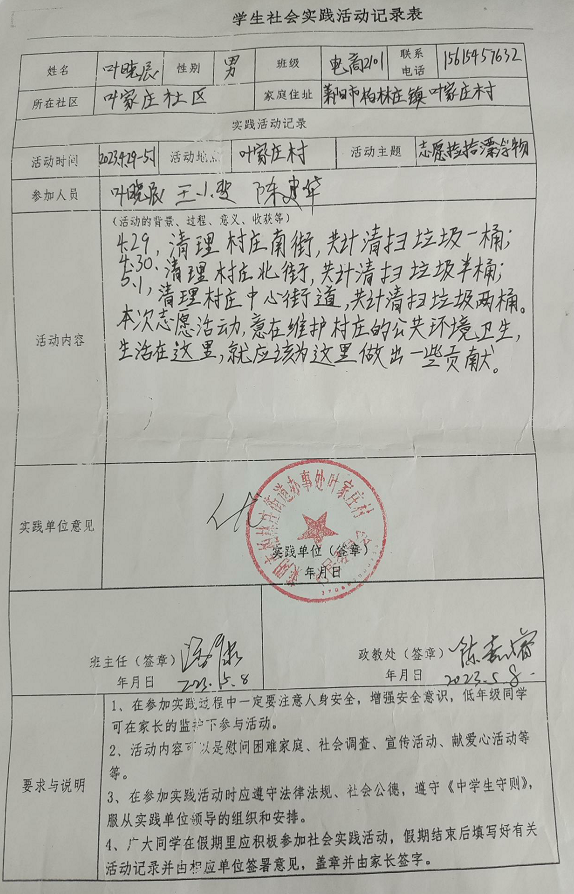 学生社会实践活动记录表
姓名 叶晓辰 性别 男 班级 电商2101 联系电话 15615457632
所在社区 叶家庄社区 家庭住址 莱阳市柏林庄镇叶家庄村
实践活动记录
活动时间 2023.4.29-5.1 活动地点 叶家庄村 活动主题 志愿捡拾漂浮物
参加人员 叶晓辰 王小斐 陈建华
(活动的背景、过程、意义、收获等)
4.29,清理村庄南街,共计清扫垃圾一桶;
4.30,清理村庄北街,共计清扫垃圾半桶;
5.1,清理村庄中心街道,共计清扫垃圾两桶。
活动内容
本次志愿活动,意在维护村庄的公共环境卫生,
生活在这里,就应该为这里做出一些贡献。
实践单位意见
优
柏林庄街道办事处叶家庄村
实践单位(签章)
年月日
班主任(签章)
年月日 2023.5.8
政教处(签章)
年月日 2023.5.8.
要求与说明
1、在参加实践过程中一定要注意人身安全,增强安全意识,低年级同学
可在家长的监护下参与活动。
2、活动内容可以是慰问困难家庭、社会调查、宣传活动、献爱心活动等
等。
3、在参加实践活动时应遵守法律法规、社会公德,遵守《中学生守则》,
服从实践单位领导的组织和安排。
4、广大同学在假期里应积极参加社会实践活动,假期结束后填写好有关
活动记录并由相应单位签署意见,盖章并由家长签字。